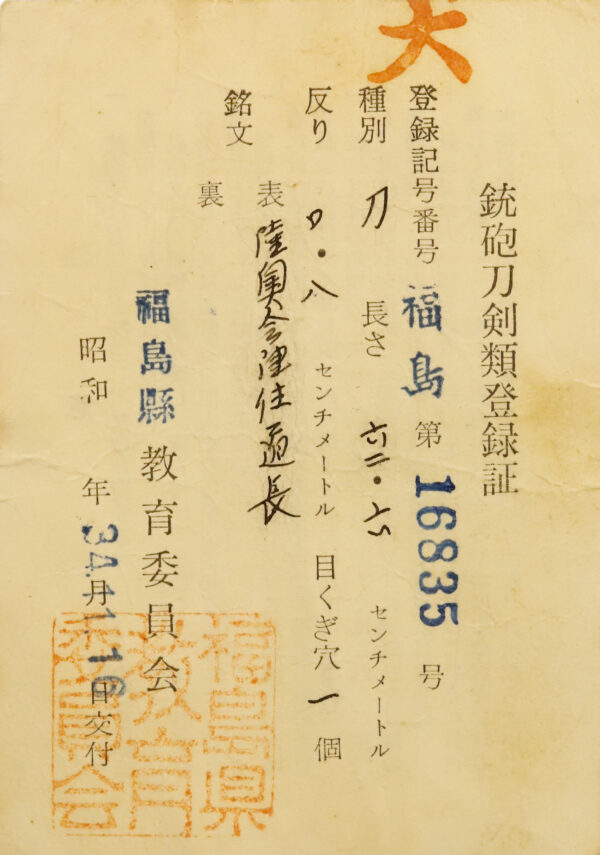 銃砲刀剣類登録証
登録記号番号 福島 第 16835 号
種別 刀 長さ 六二・六 センチメートル
反り 〇・八 センチメートル 目くぎ穴 一 個
銘文 表 陸奥会津住道長
裏
福島縣教育委員会
昭和 34年.11月.16日交付
福島県
教育
委員会